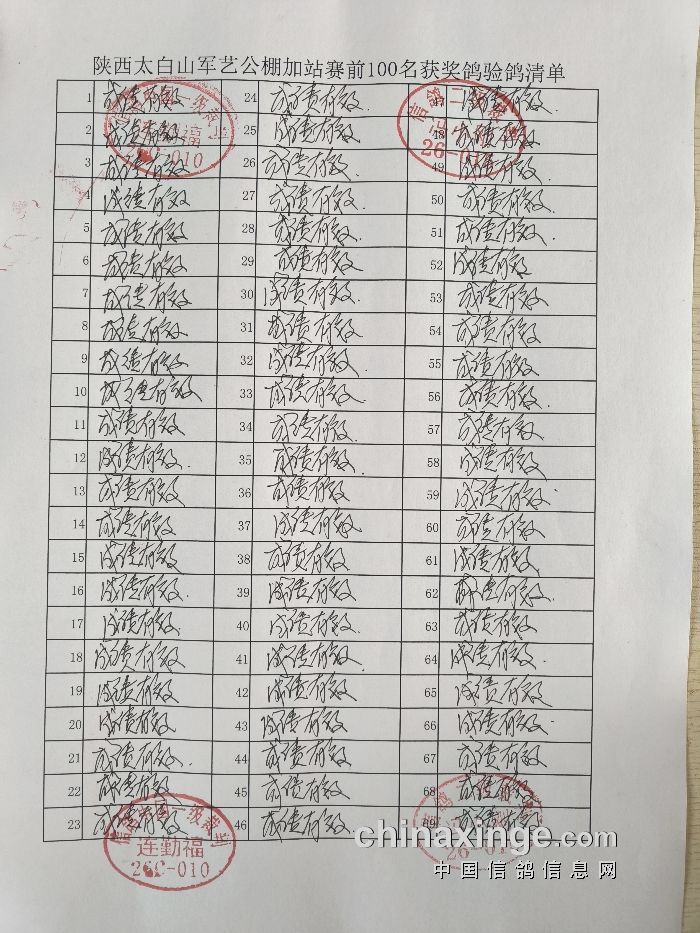 陕西太白山军艺公棚加站赛前100名获奖鸽验鸽清单
1 成绩有效 24 成绩有效 成绩有效
2 成绩有效 25 成绩有效 48 成绩有效
3 成绩有效 26 成绩有效 49 成绩有效
4 成绩有效 27 成绩有效 50 成绩有效
5 成绩有效 28 成绩有效 51 成绩有效
6 成绩有效 29 成绩有效 52 成绩有效
7 成绩有效 30 成绩有效 53 成绩有效
8 成绩有效 31 成绩有效 54 成绩有效
9 成绩有效 32 成绩有效 55 成绩有效
10 成绩有效 33 成绩有效 56 成绩有效
11 成绩有效 34 成绩有效 57 成绩有效
12 成绩有效 35 成绩有效 58 成绩有效
13 成绩有效 36 成绩有效 59 成绩有效
14 成绩有效 37 成绩有效 60 成绩有效
15 成绩有效 38 成绩有效 61 成绩有效
16 成绩有效 39 成绩有效 62 成绩有效
17 成绩有效 40 成绩有效 63 成绩有效
18 成绩有效 41 成绩有效 64 成绩有效
19 成绩有效 42 成绩有效 65 成绩有效
20 成绩有效 43 成绩有效 66 成绩有效
21 成绩有效 44 成绩有效 67 成绩有效
22 成绩有效 45 成绩有效 68 成绩有效
23 成绩有效 46 成绩有效 69 成绩有效
连勤福
26C-010
chinaxinge.com
中国信鸽信息网